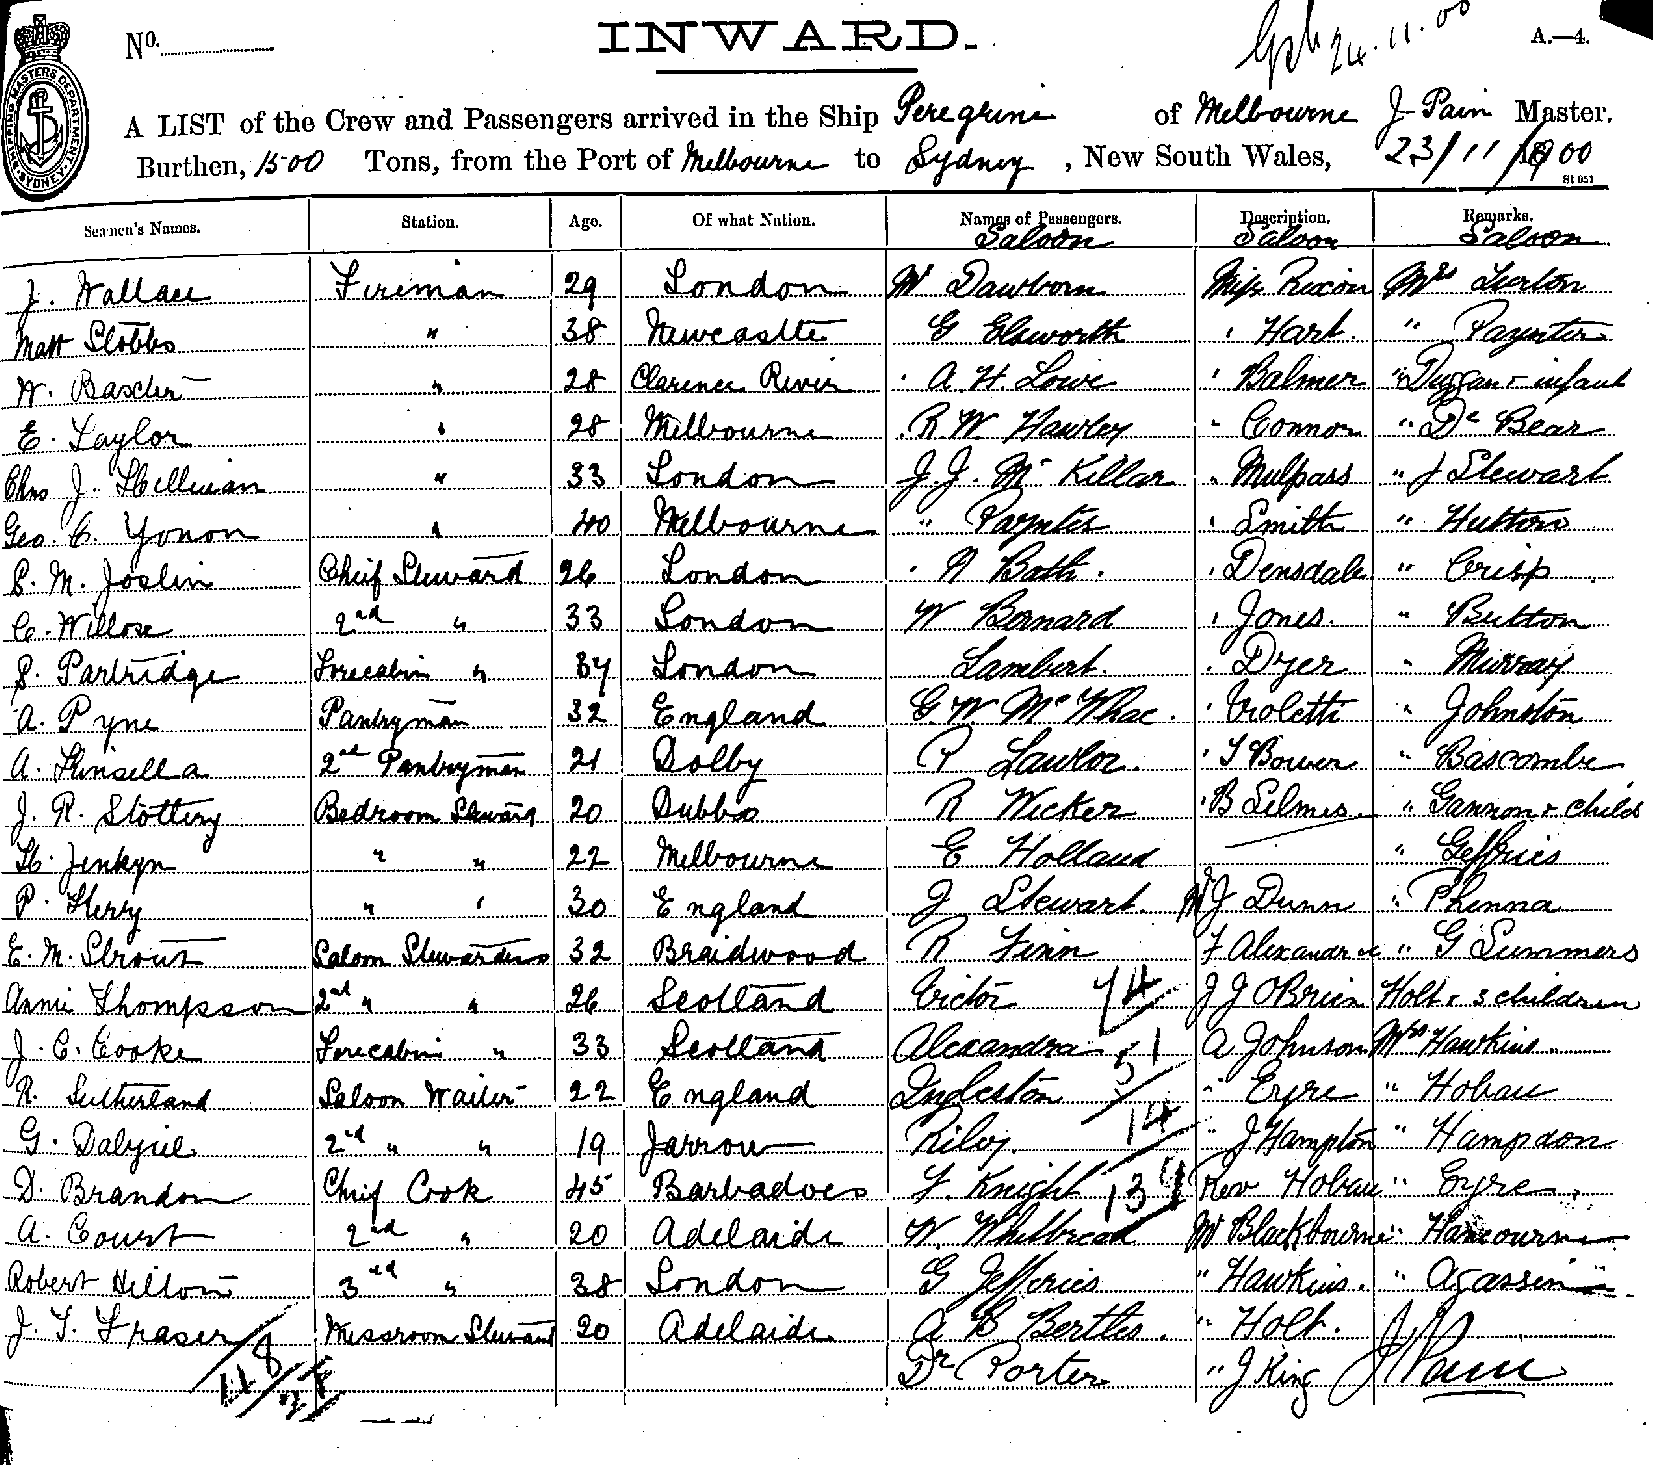 No. INWARD. 24.11.00 A.—4.
A LIST of the Crew and Passengers arrived in the Ship Peregrine of Melbourne J Pain Master.
Burthen, 1500 Tons, from the Port of Melbourne to Sydney, New South Wales, 23/11/1900
Seamen's Names. Station. Age. Of what Nation. Names of Passengers. Description. Remarks.
Saloon Saloon Saloon
J. Wallace Fireman 29 London Mr Dawborn Miss Rixon Mrs Lurton
Matt Stobbs " 38 Newcastle G Elsworth " Hart. " Paynter
W. Baxter " 28 Clarence River A H Lowe " Balmer " Duggan & infant
E. Taylor " 28 Melbourne R W Hawley " Connon " De Bear
Chas J. " 33 London J. J. Mc Killar " Mulpass " J Stewart
Geo. C. Yonon " 40 Melbourne " Paynter " Smith " Hutton
S. M. Joslin Chief Steward 26 London Bath. " Densdale " Crisp
C. Willose 2nd " 33 London W Bernard " Jones. " Button
S. Partridge Forecabin " 37 London Lambert. " Dyer " Murray
A. Pyne Pantryman 32 England G. W. Mc Whae. " Violette " Johnston
A. Kinsella 2nd Pantryman 21 Dolby P Lawlor. " T Bower " Bascombe
J. R. Slottery Bedroom Steward 20 Dubbo R Wicker " B Selmes " Gannon & child
H. Jenkyn " " 22 Melbourne E Holland " Geffries
P. Herry " " 30 England J Stewart. Mr J Dunn " Phenna
E. M. Strout Saloon Stewardess 32 Braidwood R Finn F Alexander " G Summers
Annie Thompson 2nd " " 26 Scotland Victor 74 J J O'Brien Holt & 3 children
J. C. Cooke Forecabin " 33 Scotland Alexandra 51 A Johnson Mrs Hawkins
R. Sutherland Saloon Waiter 22 England Ingleston " Eyre " Hoban
G. Dalziel 2nd " " 19 Jarrow Riley 14 " J Hampton " Hampdon
D. Brandon Chief Cook 45 Barbadoes F. Knight 139 Rev Hoban " Eyre.
A. Court 2nd " 20 Adelaide W. Whitbread Mr Blackbourne "
Robert Hilton 3rd " 38 London G Jefferies " Hawkins. " Agassin
J. T. Fraser Messroom Steward 20 Adelaide A G Bertles. " Holt.
48 Dr Porter " J King J Pain
24